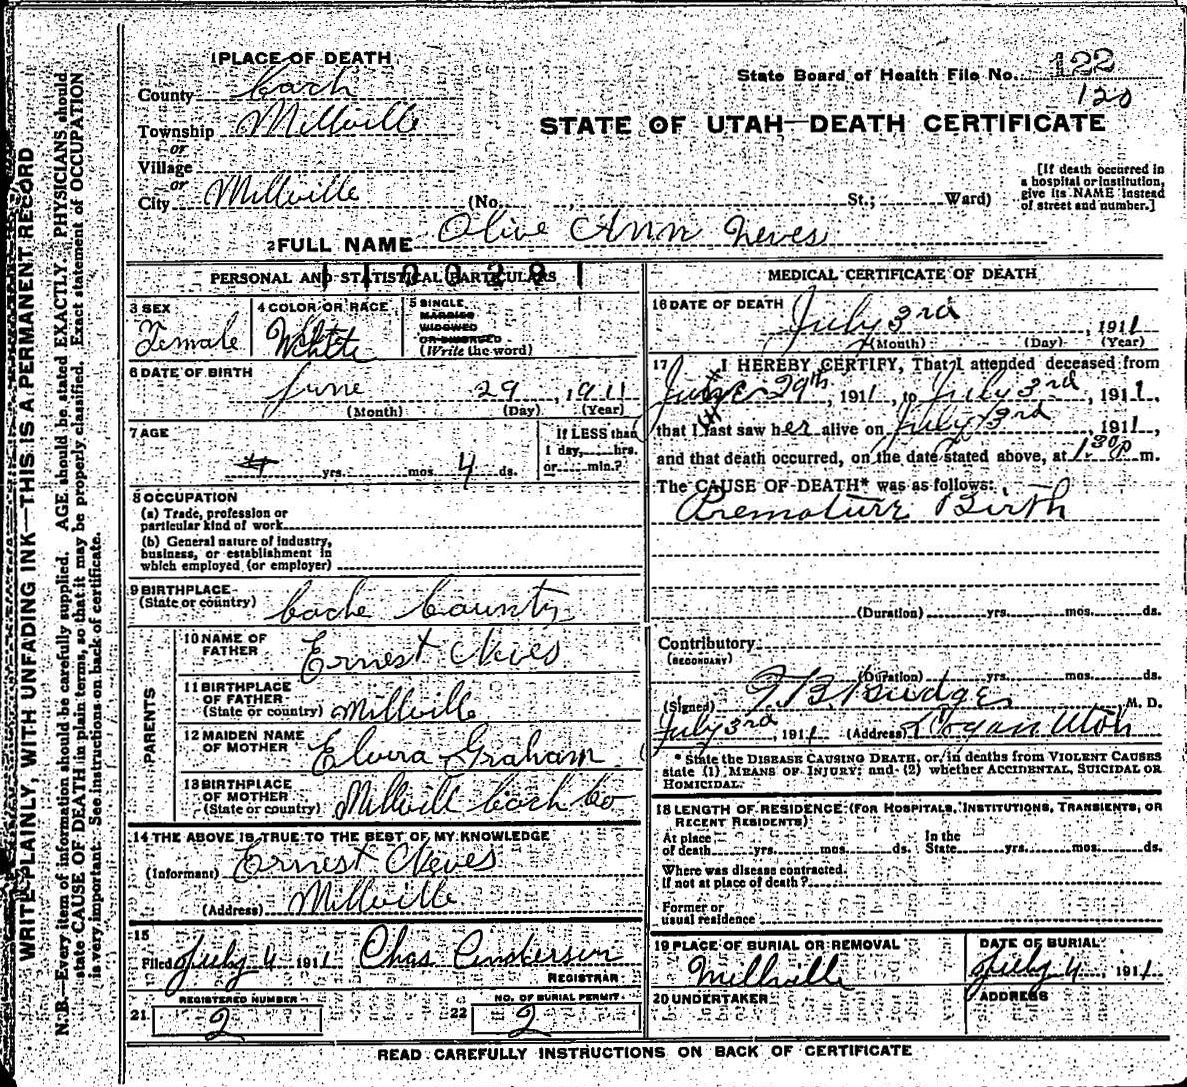 WRITE PLAINLY, WITH UNFADING INK—THIS IS A PERMANENT RECORD
N. B.—Every item of information should be carefully supplied. AGE should be stated EXACTLY. PHYSICIANS should
state CAUSE OF DEATH in plain terms, so that it may be properly classified. Exact statement of OCCUPATION
is very important. See instructions on back of certificate.
1 PLACE OF DEATH
County Cach
Township Millville
or
Village
or
City Millville (No. St.; Ward)
State Board of Health File No. 122
120
STATE OF UTAH—DEATH CERTIFICATE
[If death occurred in
a hospital or institution,
give its NAME instead
of street and number.]
2 FULL NAME Olive Ann Neves
PERSONAL AND STATISTICAL PARTICULARS
3 SEX
Female
4 COLOR OR RACE
White
5 SINGLE,
MARRIED
WIDOWED
OR DIVORCED
(Write the word)
6 DATE OF BIRTH
June 29, 1911
(Month) (Day) (Year)
7 AGE
yrs. mos. 4 ds.
If LESS than
1 day, hrs.
or min.?
8 OCCUPATION
(a) Trade, profession or
particular kind of work
(b) General nature of industry,
business, or establishment in
which employed (or employer)
9 BIRTHPLACE
(State or country) Cache County
PARENTS
10 NAME OF
FATHER Ernest Neves
11 BIRTHPLACE
OF FATHER
(State or country) Millville
12 MAIDEN NAME
OF MOTHER Elvira Graham
13 BIRTHPLACE
OF MOTHER
(State or country) Millvill Cach Co
14 THE ABOVE IS TRUE TO THE BEST OF MY KNOWLEDGE
(Informant) Ernest Neves
(Address) Millville
15
Filed July 4 1911 Chas
REGISTRAR
REGISTERED NUMBER
21 2
NO. OF BURIAL PERMIT
22 2
MEDICAL CERTIFICATE OF DEATH
16 DATE OF DEATH
July 3rd, 1911
(Month) (Day) (Year)
17 I HEREBY CERTIFY, That I attended deceased from
June 29th, 1911, to July 3rd, 1911,
that I last saw her alive on July 3rd, 1911,
and that death occurred, on the date stated above, at 1:30 p m.
The CAUSE OF DEATH* was as follows:
Premature Birth
(Duration) yrs. mos. ds.
Contributory
(SECONDARY)
(Duration) yrs. mos. ds.
(Signed) T. B. Budge M. D.
July 3rd, 1911 (Address) Logan Utah
* State the DISEASE CAUSING DEATH, or, in deaths from VIOLENT CAUSES
state (1) MEANS OF INJURY; and (2) whether ACCIDENTAL, SUICIDAL OR
HOMICIDAL.
18 LENGTH OF RESIDENCE (FOR HOSPITALS, INSTITUTIONS, TRANSIENTS, OR
RECENT RESIDENTS)
At place
of death yrs. mos. ds.
In the
State yrs. mos. ds.
Where was disease contracted
If not at place of death?
Former or
usual residence
19 PLACE OF BURIAL OR REMOVAL
Millville
DATE OF BURIAL
July 4, 1911
20 UNDERTAKER
ADDRESS
READ CAREFULLY INSTRUCTIONS ON BACK OF CERTIFICATE